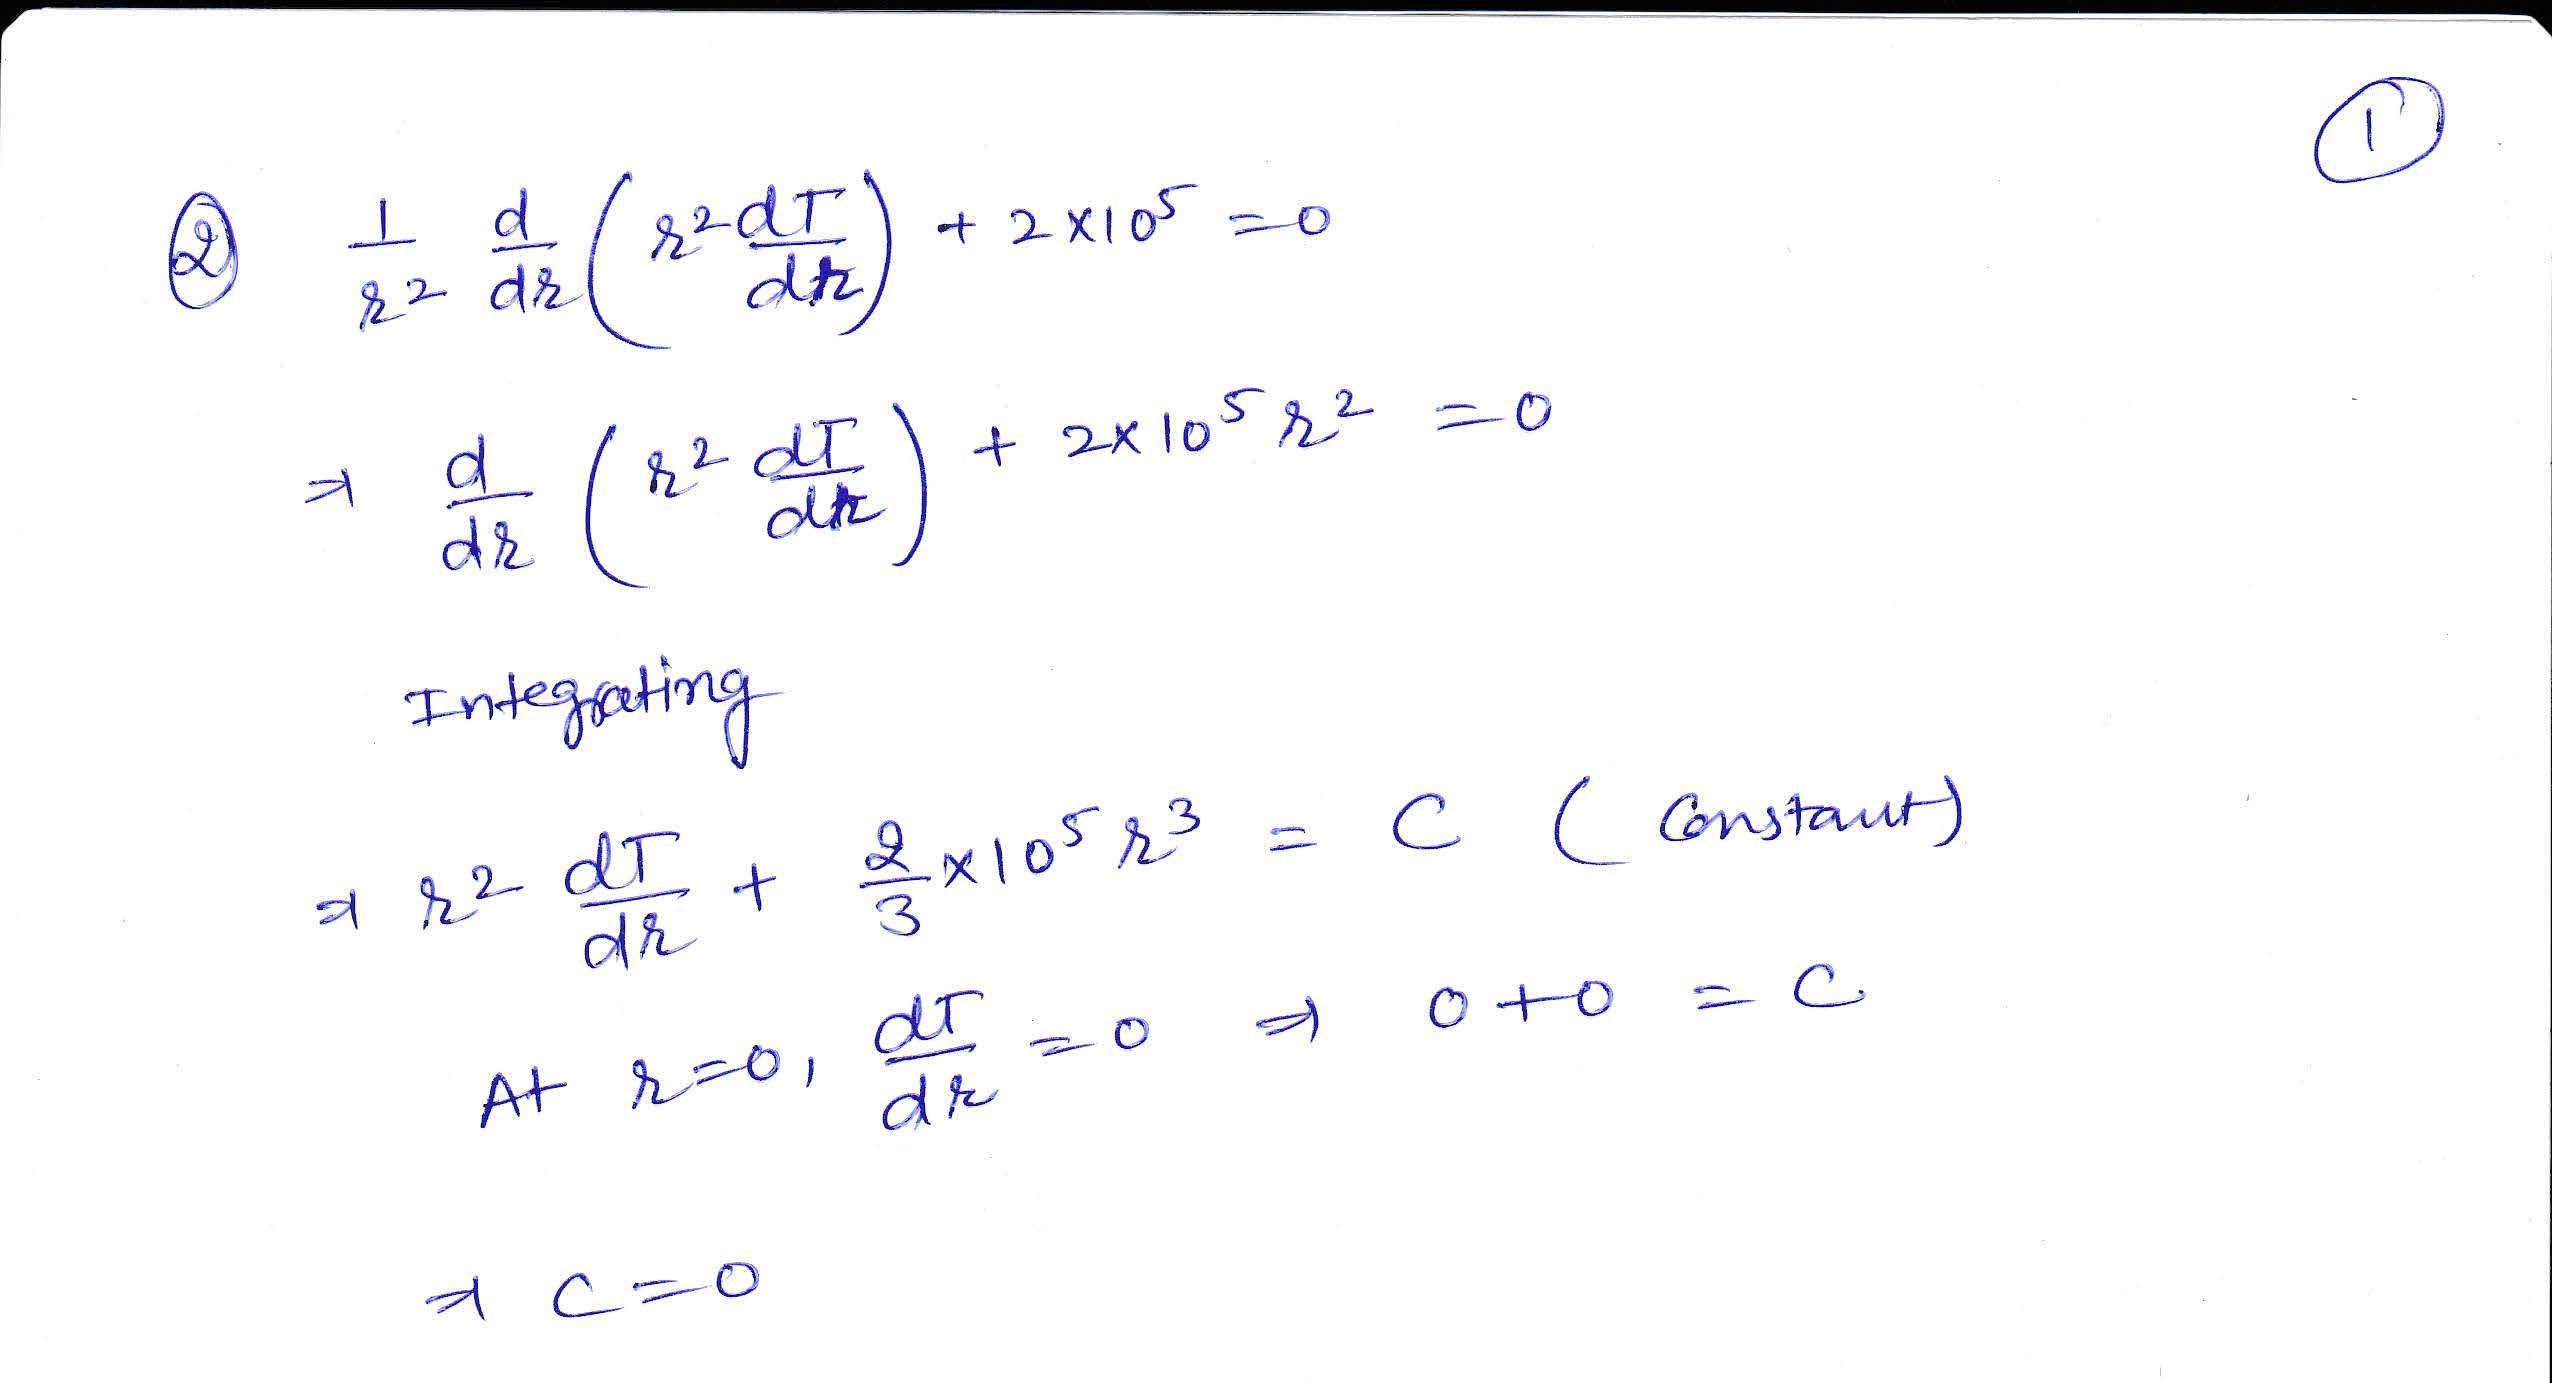 ①
② 1/r² d/dr (r² dT/dr) + 2×10⁵ = 0
⇒ d/dr (r² dT/dr) + 2×10⁵ r² = 0
Integrating
⇒ r² dT/dr + 2/3 ×10⁵ r³ = C (Constant)
At r=0, dT/dr = 0 ⇒ 0+0 = C
⇒ C=0